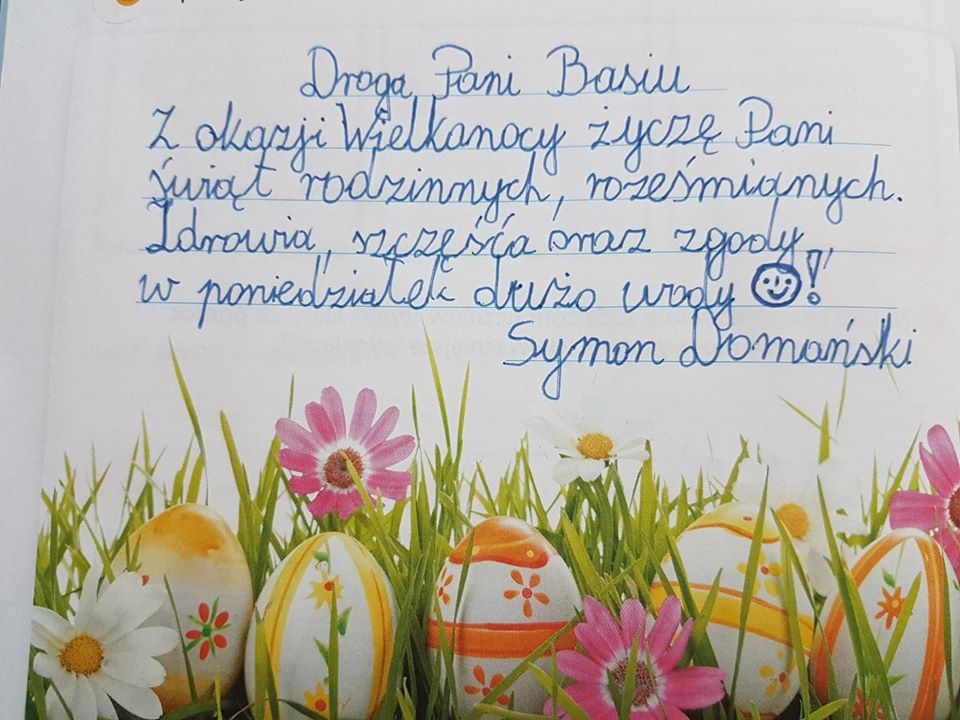 Droga Pani Basiu
Z okazji Wielkanocy życzę Pani
świąt rodzinnych, roześmianych.
Zdrowia, szczęścia oraz zgody
w poniedziałek dużo wody 😊!
Symon Domański